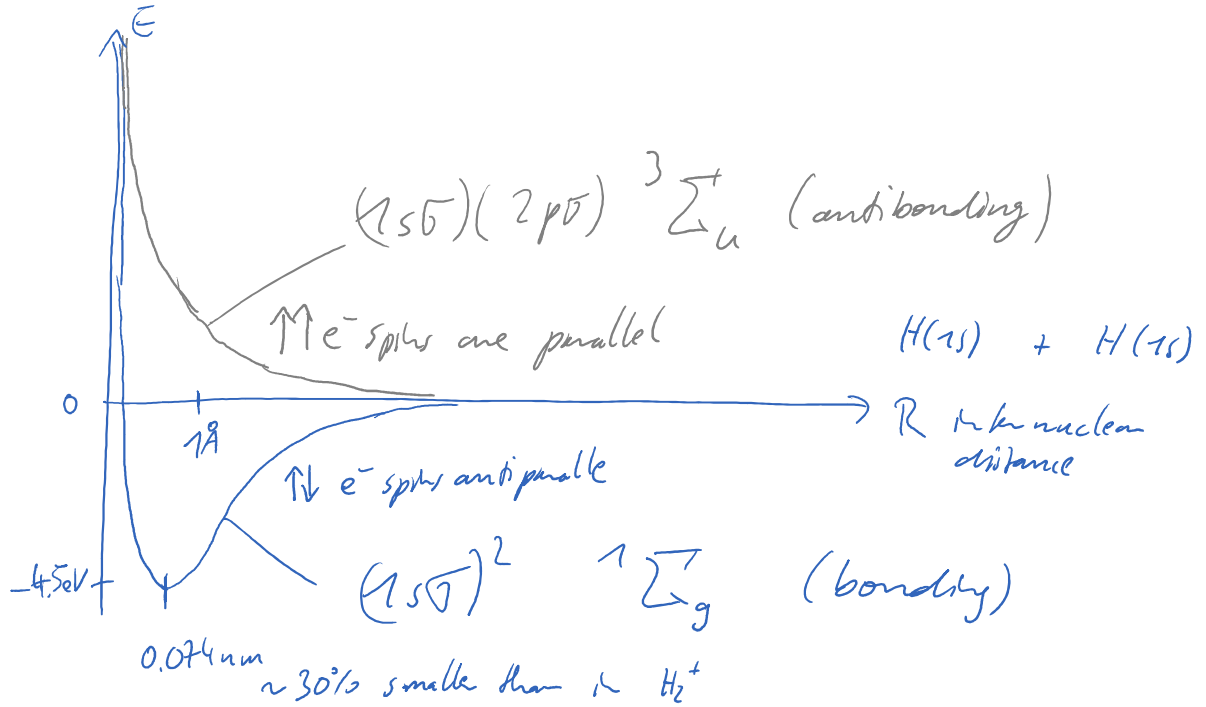 E
(1sσ)(2pσ) ³Σ⁺ᵤ (antibonding)
↑↑ e⁻ spins are parallel
H(1s) + H(1s)
0
1Å
R internuclear
distance
↑↓ e⁻ spins antiparalle
-4.5eV
(1sσ)² ¹Σg (bonding)
0.074nm
~30% smaller than in H₂⁺